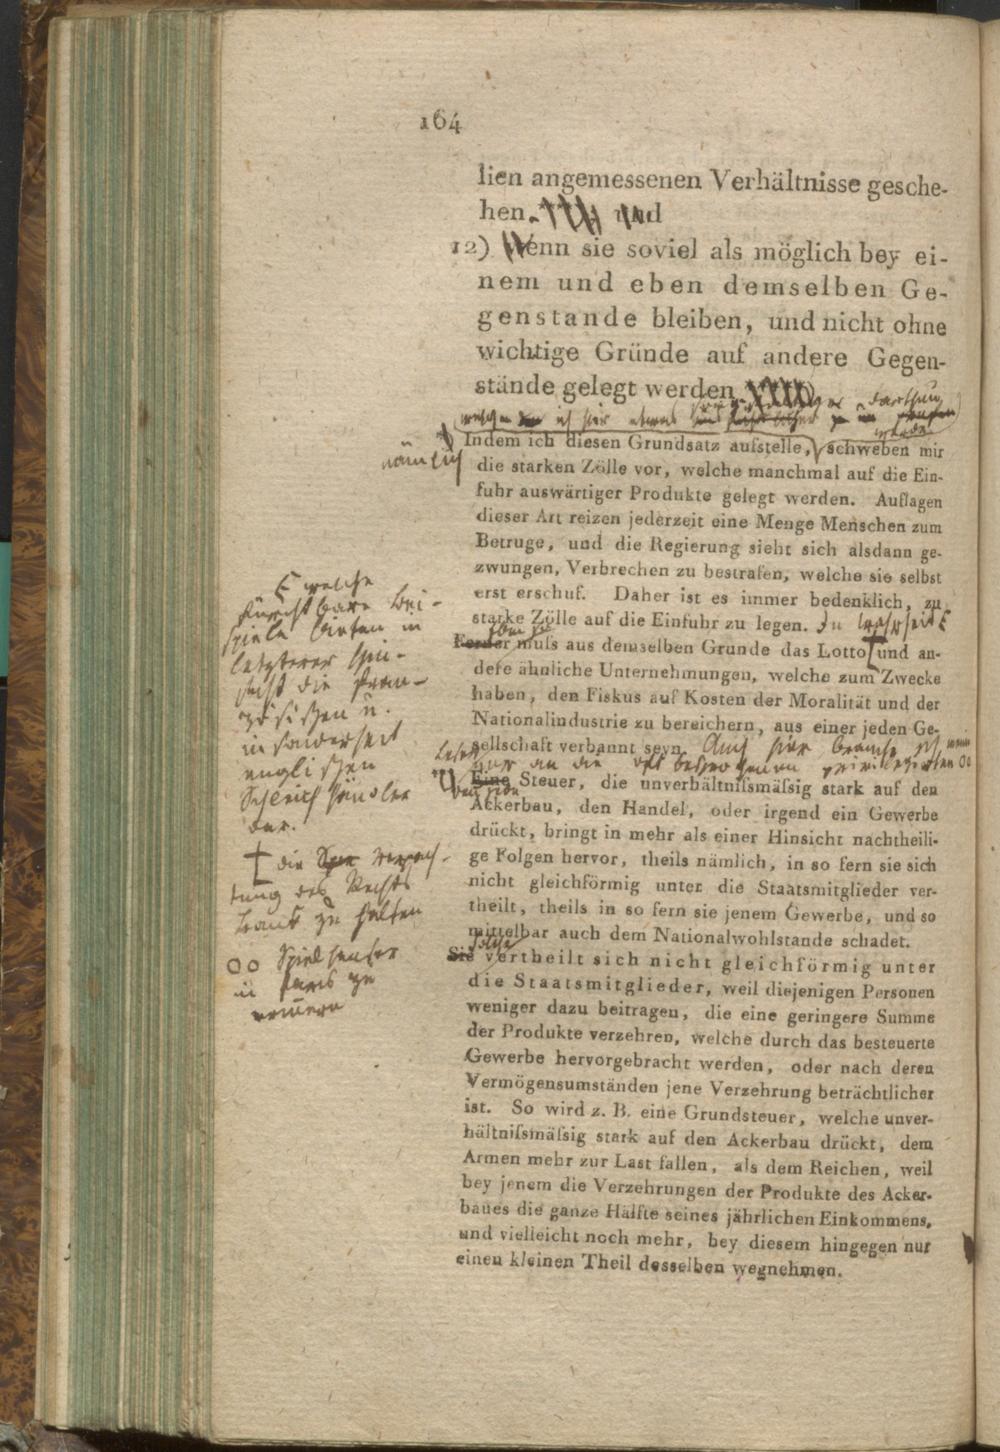 164
lien angemessenen Verhältnisse gesche-
hen. und
12) Wenn sie soviel als möglich bey ei-
nem und eben demselben Ge-
genstande bleiben, und nicht ohne
wichtige Gründe auf andere Gegen-
stände gelegt werden.
ich hier etwas
werde
nämlich
Indem ich diesen Grundsatz aufstelle, schweben mir
die starken Zölle vor, welche manchmal auf die Ein-
fuhr auswärtiger Produkte gelegt werden. Auflagen
dieser Art reizen jederzeit eine Menge Menschen zum
Betruge, und die Regierung sieht sich alsdann ge-
zwungen, Verbrechen zu bestrafen, welche sie selbst
erst erschuf. Daher ist es immer bedenklich, zu
starke Zölle auf die Einfuhr zu legen. In Wahrheit
Ferner muſs aus demselben Grunde das Lotto und an-
dere ähnliche Unternehmungen, welche zum Zwecke
haben, den Fiskus auf Kosten der Moralität und der
Nationalindustrie zu bereichern, aus einer jeden Ge-
sellschaft verbannt seyn. Auch hier brauche ich
nur an die privilegirten
Eine Steuer, die unverhältniſsmäſsig stark auf den
Ackerbau, den Handel, oder irgend ein Gewerbe
drückt, bringt in mehr als einer Hinsicht nachtheili-
ge Folgen hervor, theils nämlich, in so fern sie sich
nicht gleichförmig unter die Staatsmitglieder ver-
theilt, theils in so fern sie jenem Gewerbe, und so
mittelbar auch dem Nationalwohlstande schadet.
solche
Sie vertheilt sich nicht gleichförmig unter
die Staatsmitglieder, weil diejenigen Personen
weniger dazu beitragen, die eine geringere Summe
der Produkte verzehren, welche durch das besteuerte
Gewerbe hervorgebracht werden, oder nach deren
Vermögensumständen jene Verzehrung beträchtlicher
ist. So wird z. B. eine Grundsteuer, welche unver-
hältniſsmäſsig stark auf den Ackerbau drückt, dem
Armen mehr zur Last fallen, als dem Reichen, weil
bey jenem die Verzehrungen der Produkte des Acker-
baues die ganze Hälfte seines jährlichen Einkommens,
und vielleicht noch mehr, bey diesem hingegen nur
einen kleinen Theil desselben wegnehmen.
welche
furchtbare Bei-
spiele bieten in
letzterer Hin-
sicht die fran-
zösischen u.
in Sonderheit
englischen
Schleichhändler
dar.
die Verpach-
tung des Rechts
Bank zu halten
Spielhäuser
in Paris zu
erinnern